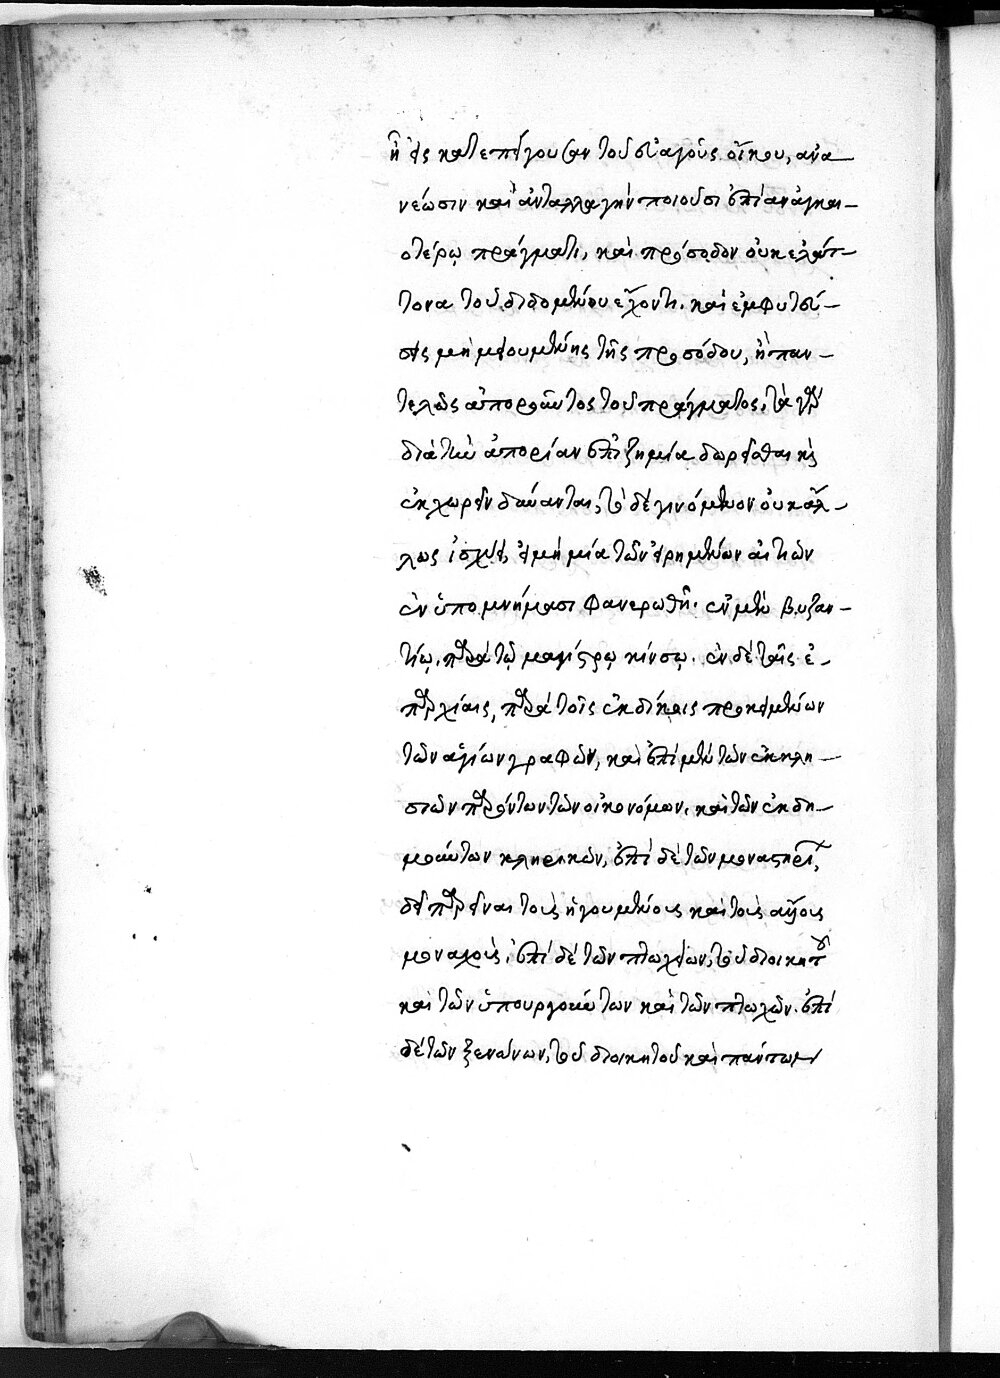 ἢ εἰς κατεπείγουσαν τοῦ εὐαγοῦς οἴκου, ἀνα
νέωσιν καὶ ἀνταλλαγὴν ποιοῦσι ἐπὶ ἀναγκαι
οτέρῳ πράγματι, καὶ πρόσοδον οὐκ ἐλάτ
τονα τοῦ διδομένου ἔχοντι. καὶ ἐμφυτεύ
σεις μὴ μειουμένης τῆς προσόδου, ἢ παν
τελῶς ἀποροῦντος τοῦ πράγματος, τὰ γὰρ
διὰ τὴν ἀπορίαν ἐπιζήμια δωρεῖσθαι καὶ
ἐκχωρεῖν δύνανται, τὸ δὲ γινόμενον οὐκ ἄλ
λως ἰσχύει, εἰ μὴ μία τῶν εἰρημένων αἰτιῶν
ἐν ὑπομνήμασι φανερωθῇ. ἐν μὲν βυζαν
τίῳ, παρὰ τῷ μαγίστρῳ κίνσῳ. ἐν δὲ ταῖς ἐ
παρχίαις, παρὰ τοῖς ἐκδίκοις προκειμένων
τῶν ἁγίων γραφῶν, καὶ ἐπὶ μὲν τῶν ἐκκλη
σιῶν παρόντων τῶν οἰκονόμων. καὶ τῶν ἐνδη
μούντων κληρικῶν, ἐπὶ δὲ τῶν μοναστηρί,
δεῖ παρεῖναι τοὺς ἡγουμένους καὶ τοὺς
μοναχούς. ἐπὶ δὲ τῶν πτωχείων, τοῦ διοικητοῦ
καὶ τῶν ὑπουργούντων καὶ τῶν πτωχῶν. ἐπὶ
δὲ τῶν ξενώνων, τοῦ διοικητοῦ καὶ πάντων